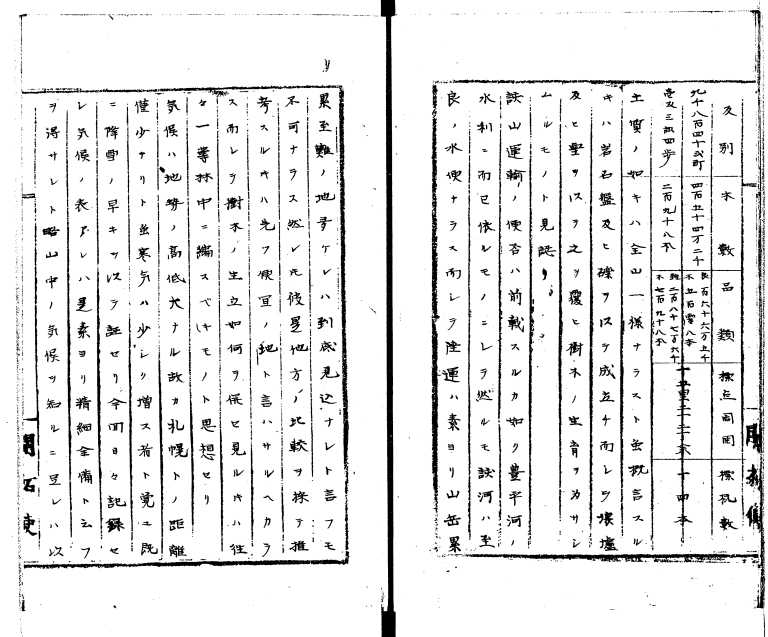 反別 木數 品類 標点周囲 標札数
九千八百四十弐町 四百五十四万二千 良 百六十六万五千 十五里二二六 十四本
壱反三畝四歩 二百九十八本 不五百零八本 雑二百八十七万六千 不七百九十八本
土質ノ如キハ全山一様ナラスト虽概言スル
キハ岩石盤及ヒ礫ヲ以テ成立チ而レヲ壌壚
及ヒ埿ヲ以テ之ヲ覆ヒ樹木ノ生育ヲカサシ
ムルモノト見認リ
該山運輸ノ便否ハ前載スルカ如ク豊平河ノ
水利ニ而已依ルモノニシテ然ルモ該河ハ至
良ノ水便ナラス而シテ陸運ハ素ヨリ山岳累
累至難ノ地ナケレハ到底見込ナレト言フモ
不可ナラス然レ圧彼是他方ノ比較ヲ採テ推
考スルキハ先ツ便宜ノ地ト言ハサルヘカラ
ス而シテ樹木ノ生立如何ヲ併セ見ルキハ往
々一等林中ニ編スベキモノト思想セリ
気候ハ地勢ノ高低大ナル故カ札幌トノ距離
僅少ナリト虽寒気ハ少シク増ス若ト覚ユ既
ニ降雪ノ早キヲ以テ証セリ今回日々記録セ
レ気候ノ表アレハ是素ヨリ精細全備ト云フ
ヲ得サレト略山中ノ気候ヲ知ルニ足レハ以
開拓使